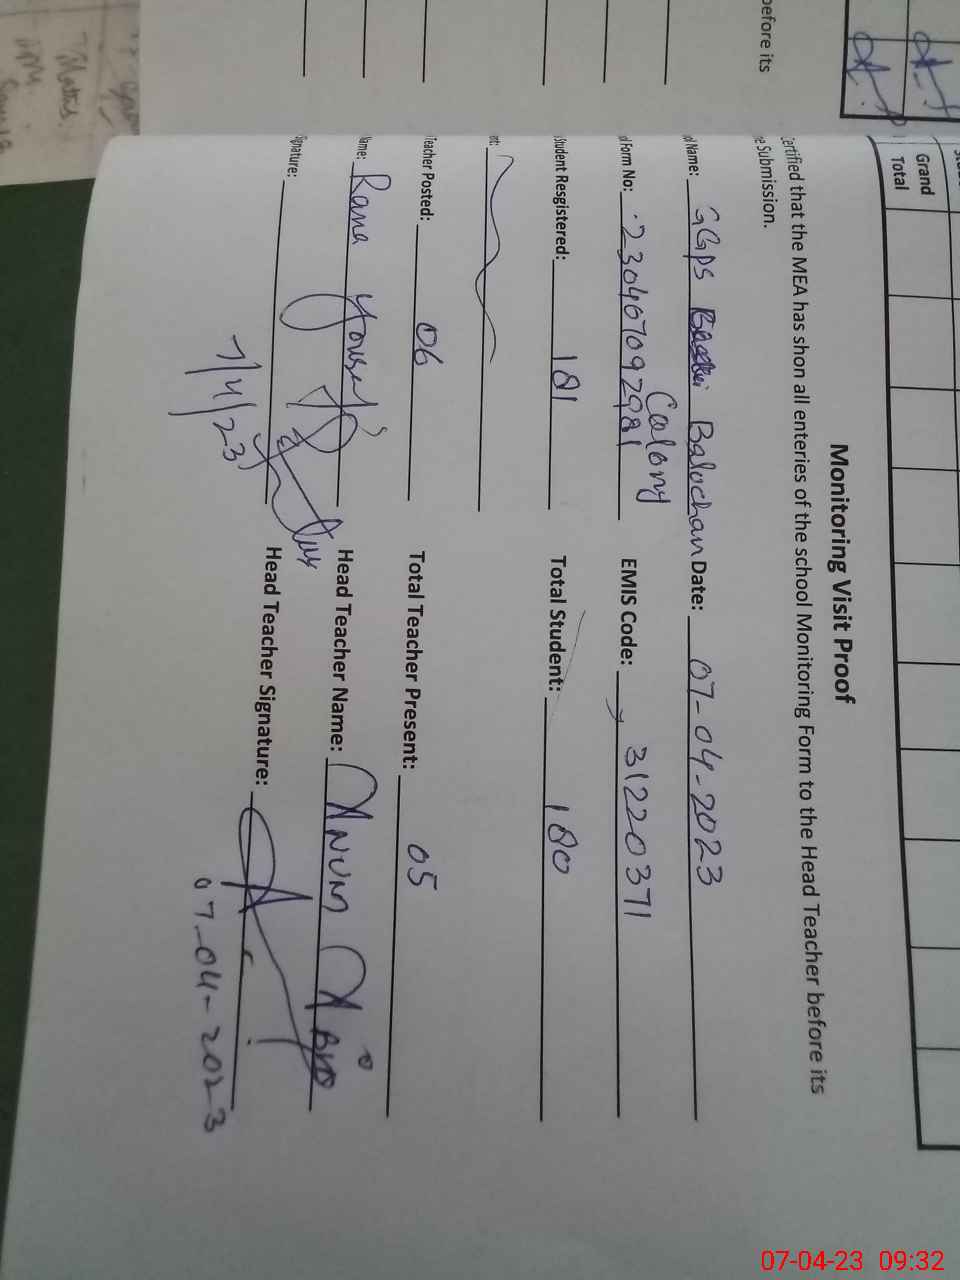 Grand
Total
before its
Monitoring Visit Proof
ertified that the MEA has shon all enteries of the school Monitoring Form to the Head Teacher before its
e Submission.
ol Name: GGPS Balochan Date: 07-04-2023
Colony
ol Form No: 230407092981 EMIS Code: 31220371
Student Resgistered: 181 Total Student: 180
nt:
Teacher Posted: 06 Total Teacher Present: 05
Name: Rana Yousaf Head Teacher Name: ANUM ABRO
Signature: Head Teacher Signature:
7/4/23
07-04-2023
07-04-23 09:32